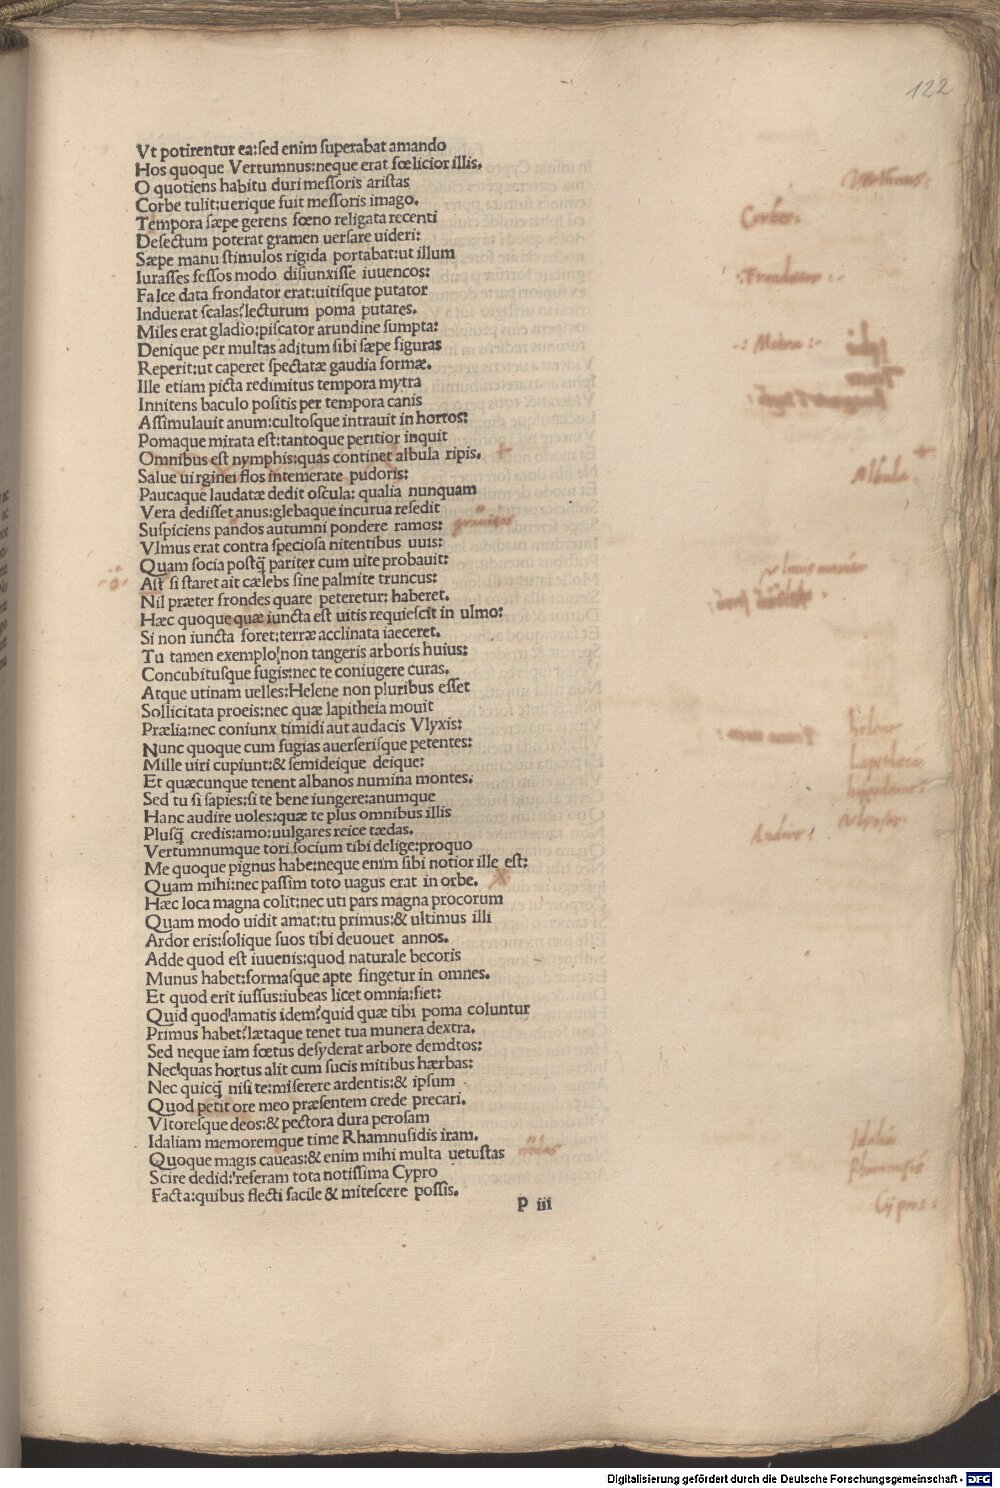 122
Vt potirentur ea:sed enim superabat amando
Hos quoque Vertumnus:neque erat fœlicior illis.
O quotiens habitu duri messoris aristas
Corbe tulit:uerique fuit messoris imago.
Tempora sæpe gerens fœno religata recenti
Desectum poterat gramen uersare uideri:
Sæpe manu stimulos rigida portabat:ut illum
Iurasses fessos modo disiunxisse iuuencos:
Falce data frondator erat:uitisque putator
Induerat scalas:lecturum poma putares.
Miles erat gladio:piscator arundine sumpta:
Denique per multas aditum sibi sæpe figuras
Reperit:ut caperet spectatæ gaudia formæ.
Ille etiam picta redimitus tempora mytra
Innitens baculo positis per tempora canis
Assimulauit anum:cultosque intrauit in hortos:
Pomaque mirata est:tantoque peritior inquit
Omnibus est nymphis:quas continet albula ripis.
Salue uirginei flos intemerate pudoris:
Paucaque laudatæ dedit oscula: qualia nunquam
Vera dedisset anus:glebaque incurua resedit
Suspiciens pandos autumni pondere ramos:
Vlmus erat contra speciosa nitentibus uuis:
Quam socia postq̃ pariter cum uite probauit:
Ast si staret ait cælebs sine palmite truncus:
Nil præter frondes quare peteretur: haberet.
Hæc quoque quæ iuncta est uitis requiescit in ulmo:
Si non iuncta foret:terræ acclinata iaeceret.
Tu tamen exemplo non tangeris arboris huius:
Concubitusque fugis:nec te coniugere curas.
Atque utinam uelles:Helene non pluribus esset
Sollicitata proeis:nec quæ lapitheia mouit
Prælia:nec coniunx timidi aut audacis Vlyxis:
Nunc quoque cum fugias auerserisque petentes:
Mille uiri cupiunt:& semideique deique:
Et quæcunque tenent albanos numina montes.
Sed tu si sapies:si te bene iungere:anumque
Hanc audire uoles:quæ te plus omnibus illis
Plusq̃ credis:amo:uulgares reice tædas.
Vertumnumque tori socium tibi delige:proquo
Me quoque pignus habe:neque enim sibi notior ille est:
Quam mihi:nec passim toto uagus erat in orbe.
Hæc loca magna colit:nec uti pars magna procorum
Quam modo uidit amat:tu primus:& ultimus illi
Ardor eris:solique suos tibi deuouet annos.
Adde quod est iuuenis:quod naturale becoris
Munus habet:formasque apte fingetur in omnes.
Et quod erit iussus:iubeas licet omnia:fiet:
Quid quod amatis idem:quid quæ tibi poma coluntur
Primus habet:lætaque tenet tua munera dextra.
Sed neque iam fœtus desyderat arbore demdtos:
Nec quas hortus alit cum sucis mitibus hærbas:
Nec quicq̃ nisi te:miserere ardentis:& ipsum
Quod petit ore meo præsentem crede precari.
Vltoresque deos:& pectora dura perosam
Idaliam memoremque time Rhamnusidis iram.
Quoque magis caueas:& enim mihi multa uetustas
Scire dedid:referam tota notissima Cypro
Facta:quibus flecti facile & mitescere possis.
P iii
Corbes:
Frondator:
Mitra:
Albula
Helene
Audire:
Idaliā
Cypros:
Digitalisierung gefördert durch die Deutsche Forschungsgemeinschaft - DFG